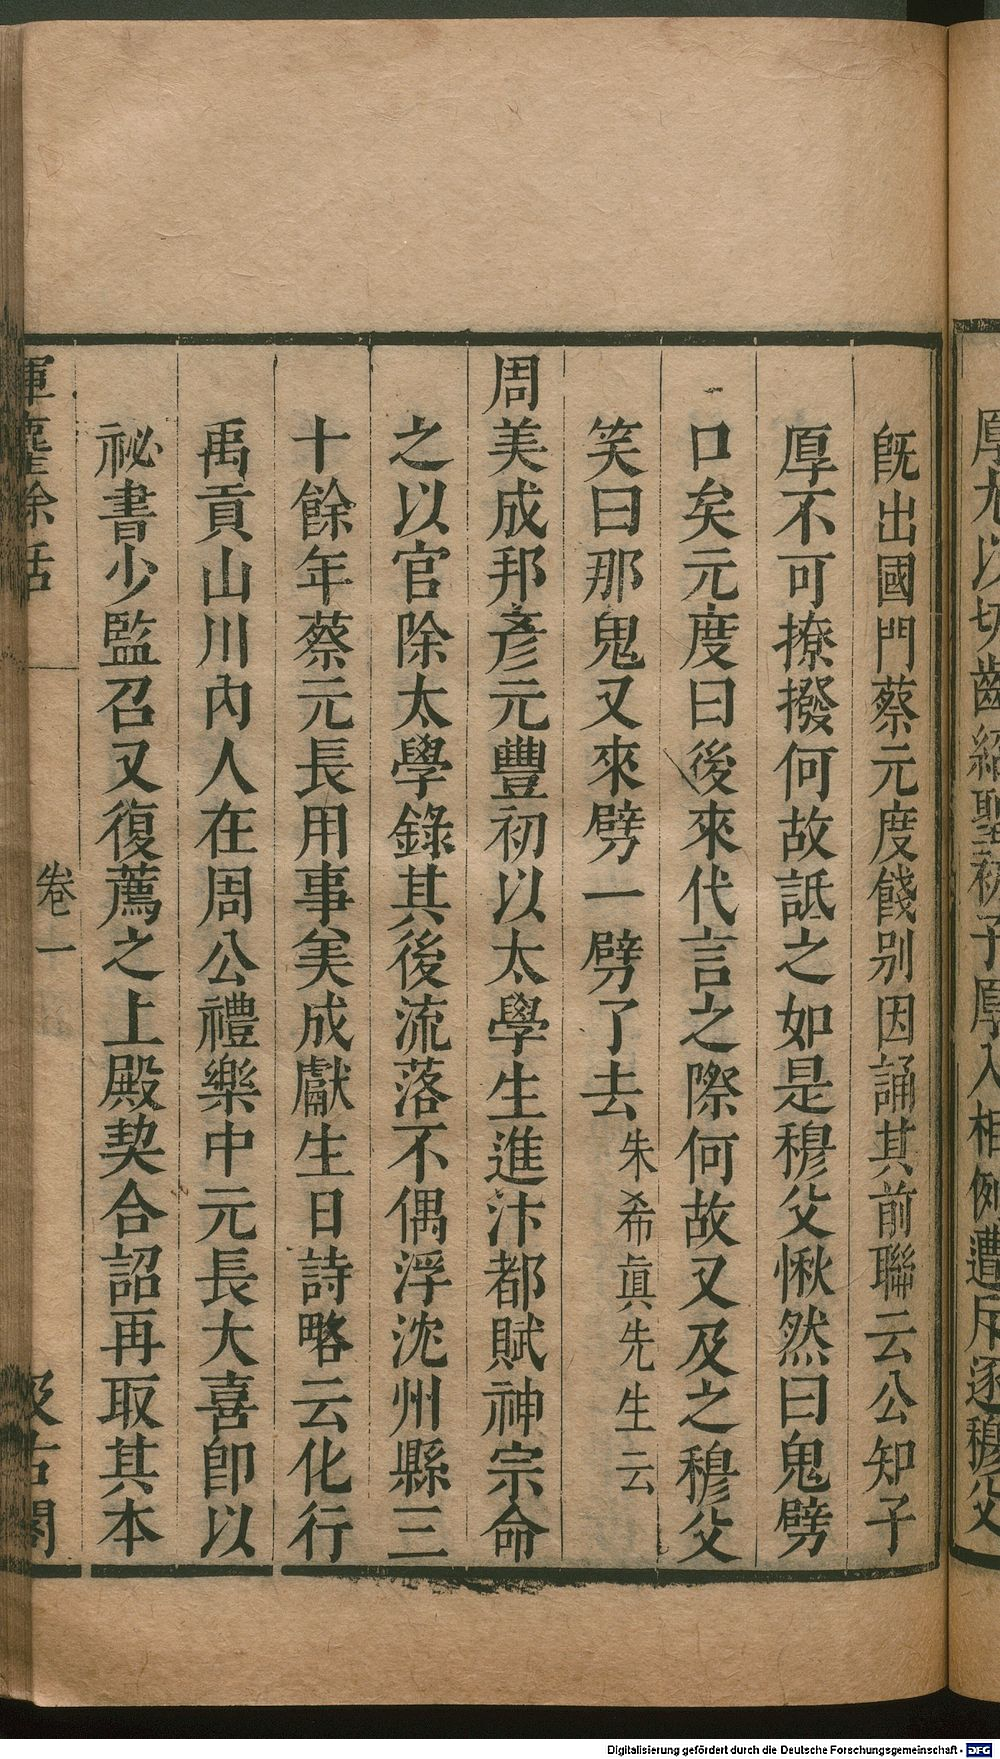 厚尤以切齒紹聖初子厚入相例遭斥逐穆父
旣出國門蔡元度餞别因誦其前聯云公知子
厚不可撩撥何故詆之如是穆父愀然曰鬼劈
口矣元度曰後來代言之際何故又及之穆父
笑曰那鬼又來劈一劈了去朱希眞先生云
周美成邦彥元豐初以太學生進汴都賦神宗命
之以官除太學錄其後流落不偶浮沈州縣三
十餘年蔡元長用事美成獻生日詩略云化行
禹貢山川內人在周公禮樂中元長大喜卽以
祕書少監召又復薦之上殿契合詔再取其本
揮麈餘話 卷一 汲古閣
Digitalisierung gefördert durch die Deutsche Forschungsgemeinschaft - DFG